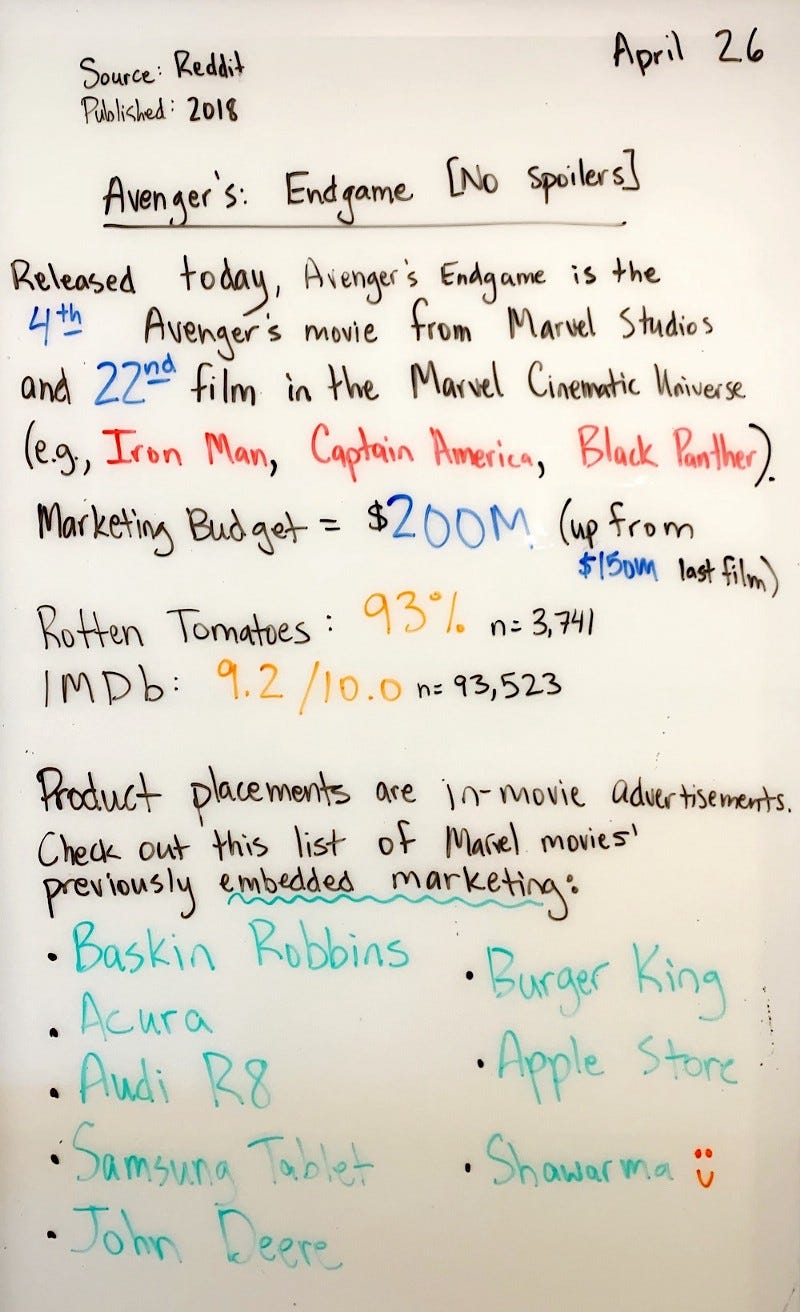 April 26
Source: Reddit
Published: 2018
Avenger's: Endgame [No spoilers]
Released today, Avenger's Endgame is the
4th Avenger's movie from Marvel Studios
and 22nd film in the Marvel Cinematic Universe
(e.g., Iron Man, Captain America, Black Panther).
Marketing Budget = $200M (up from
$150M last film)
Rotten Tomatoes: 93% n= 3,741
IMDb: 9.2/10.0 n= 93,523
Product placements are in-movie advertisements.
Check out this list of Marvel movies'
previously embedded marketing:
• Baskin Robbins
• Acura
• Audi R8
• Samsung Tablet
• John Deere
• Burger King
• Apple Store
• Shawarma